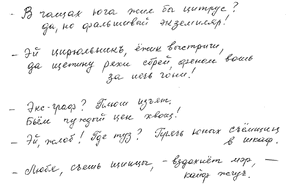 - В чащах юга жил бы цитрус?
да, но фальшивый экземпляр!
- Эй цирюльникъ, ёжик выстриги,
да щетину ряхи сбрей, феном вошь
за печь гони!
- Экс-граф? Плюш изъят.
Бьём чуждый цен хвощ!
- Эй, жлоб! Где туз? Прячь юных съёмщиц
в шкаф.
- Любя, съешь щипцы, - вздохнёт мэр, -
кайф жгуч.